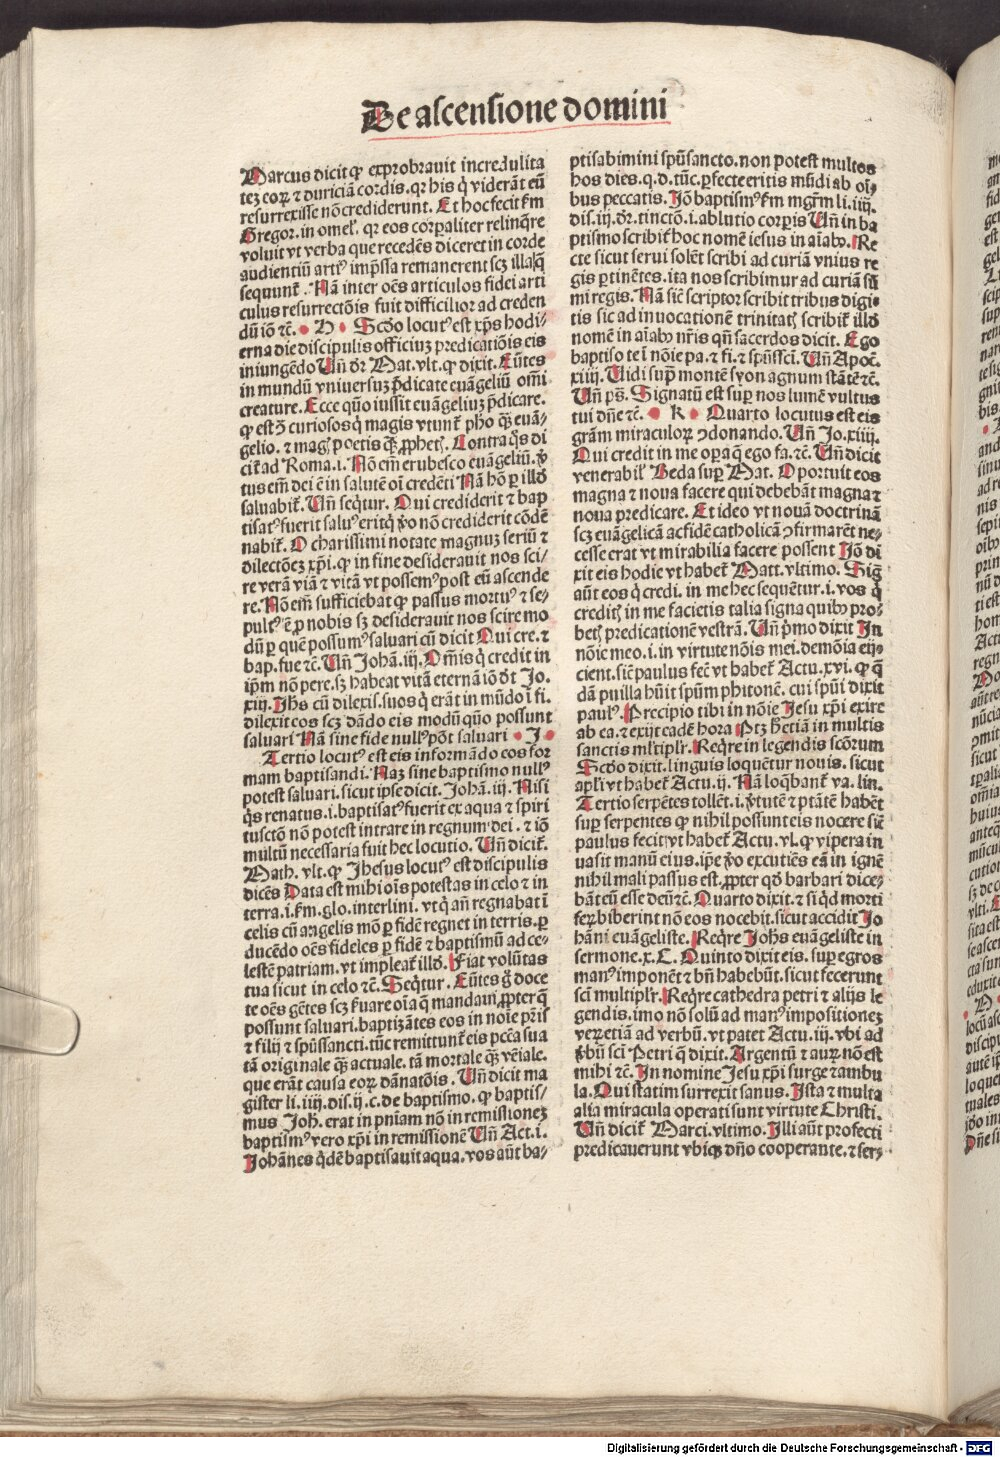 De ascensione domini
Marcus dicit qꝫ exprobrauit incredulita
teꝫ eoꝝ ⁊ duriciā cordis. qꝛ his q̇ viderāt eū
resurrexisse nō crediderunt. Et hoc fecit ẜm
Gregor. in omel'. qꝛ eos corꝑaliter relinq̄re
voluit vt verba que recedēs diceret in corde
audientiū artiꝰ imp̄ssa remanerent scꝫ illa q̄
sequunt᷑. Nā inter oēs articulos fidei arti
culus resurrectōis fuit difficilior ad creden
dū iō ⁊c̄. H Scd̄o locutꝰ est xp̄s hodi-
erna die discipulis officiuꝫ predicatiōis eis
iniungēdo Un̄ dꝛ̄ Mat. vlt. ꝙ dixit. Eūtes
in mundū vniuersuꝫ p̄dicate euāgeliū om̄i
creature. Ecce quō iussit euāgeliuꝫ p̄dicare.
ꝙ est ↄ̄ curiosos q̇ magis vtunt᷑ pho q̄ꝫ euā-
gelio. ⁊ mag̨ poetis q̄ꝫ ꝓphet̨. Contra q̇s di
cit᷑ ad Roma. i. Nō em̄ erubesco euāgeliū. v̇
tus em̄ dei ē in salutē oī credēti Nā hō ꝑ illḋ
saluabit᷑. Un̄ seq̇tur. Qui crediderit ⁊ bap
tisatꝰ fuerit saluꝰ erit q̇ v̇o nō crediderit cōdē
nabit᷑. O charissimi notate magnuꝫ seriū ⁊
dilectōeꝫ xp̄i. ꝙ in fine desiderauit nos sci-
re verā viā ⁊ vitā vt possemꝰ post eū ascende
re. Nō em̄ sufficiebat ꝙ passus mortuꝰ ⁊ se-
pultꝰ ē ꝓ nobis sꝫ desiderauit nos scire mo
dū ꝑ quē possumꝰ saluari cū dicit Qui cre. ⁊
bap. fue ⁊c̄. Un̄ Johā. iij. Om̄is q̇ credit in
ip̄m nō pere. sꝫ habeat vitā eternā iō dꝛ Jo.
xiij. Jh̄s cū dilexis. suos q̇ erāt in mūdo ī fi.
dilexit eos scꝫ dādo eis modū quō possunt
saluari Nā sine fide nullꝰ pōt saluari J
Tertio locutꝰ est eis informādo eos for
mam baptisandi. Naꝫ sine baptismo nullꝰ
potest saluari. sicut ipse dicit. Johā. iij. Nisi
q̇s renatus. i. baptisatꝰ fuerit ex aqua ⁊ spiri
tusctō nō potest intrare in regnum dei. ⁊ iō
multū necessaria fuit hec locutio. Un̄ dicit᷑.
Math. vlt. ꝙ Jhesus locutꝰ est discipulis
dicēs Data est mihi oīs potestas in celo ⁊ in
terra. i. ẜm. glo. interlini. vt q̇ an̄ regnabat ī
celis cū angelis mō ꝑ fidē regnet in terris. ꝑ
ducēdo oēs fideles ꝑ fidē ⁊ baptismū ad ce-
lestē patriam. vt impleat᷑ illḋ. Fiat volūtas
tua sicut in celo ⁊c̄. Seq̇tur. Eūtes g̊ doce
te oēs gētes scꝫ ẜuare oīa q̄ mandaui ꝓpter q̄
possunt saluari. baptizātes eos in noīe pr̄is
⁊ filij ⁊ spūssancti. tūc remittunt᷑ eis pcc̄a sua
tā originale q̄ꝫ actuale. tā mortale q̄ꝫ vēiale.
que erāt causa eoꝝ dānatōis. Un̄ dicit ma
gister li. iiij. dis. ij. c. de baptismo. ꝙ baptis-
mus Joh̄. erat in pn̄iam nō in remissioneꝫ
baptismꝰ vero xp̄i in remissionē Un̄ Act. i.
Johānes q̇dē baptisauit aqua. vos aūt ba-
ptisabimini spūsancto. non potest multos
hos dies. q. d. tūc. ꝑfecte eritis mūdi ab oī-
bus peccatis. Jō baptismꝰ ẜm mgr̄m li. iiij.
dis. iij. dꝛ. tinctō. i. ablutio corꝑis Un̄ in ba
ptismo scribit᷑ hoc nomē iesus in aīabꝫ. Re
cte sicut serui solēt scribi ad curiā vnius re
gis ꝑtinētes. ita nos scribimur ad curiā sū
mi regis. Nā sic̄ scriptor scribit tribus digi
tis sic ad inuocationē trinitat̨ scribit᷑ illḋ
nomē in aīabꝫ nr̄is qn̄ sacerdos dicit. Ego
baptiso te ī nōie pa. ⁊ fi. ⁊ spūssci. Un̄ Apoc̄.
xiiij. Uidi supꝛ montē syon agnum stātē ⁊c̄.
Un̄ ps̄. Signatū est suꝑ nos lumē vultus
tui dn̄e ⁊c̄. K Quarto locutus est eis
gr̄am miraculoꝝ ↄdonando. Un̄ Jo. xiiij.
Qui credit in me opera q̄ ego fa. ⁊c̄. Un̄ dicit
venerabil' Beda suꝑ Mat. Oportuit eos
magna ⁊ noua facere qui debebāt magna ⁊
noua predicare. Et ideo vt nouā doctrinā
scꝫ euāgelicā ac fidē catholicā ↄfirmarēt ne-
cesse erat vt mirabilia facere possent Jō di
xit eis hodie vt habet᷑ Matt. vltimo. Siḡ
aūt eos q̇ credi. in me hec sequētur. i. vos q̇
credit̨ in me facietis talia signa quibꝫ pro-
bet̨ predicationē vestrā. Un̄ p̄mo dixit In
nōie meo. i. in virtute nōis mei. demōia eij-
cient. sic̄ paulus fec̄ vt habet᷑ Actu. xvi. ꝙ q̄
dā puilla hūit spūm phitonē. cui spūi dixit
paulꝰ. Precipio tibi in nōie Jesu xp̄i exire
ab ea. ⁊ exijt eadē hora Ptꝫ h̄ etiā in multis
sanctis ml'tipl'r. Req̇re in legendis scōrum
Scd̄o dixit. linguis loquētur nouis. sicut
apl'i vt habet᷑ Actu. ij. Nā loq̄bant᷑ va. lin.
Tertio serpētes tollēt. i. v̇tutē ⁊ ptātē habēt
suꝑ serpentes ꝙ nihil possunt eis nocere sic̄
paulus fecit vt habet᷑ Actu. vl. ꝙ vipera in
uasit manū eius. ip̄e v̇o excutiēs eā in ignē
nihil mali passus est. ꝓpter qd̄ barbari dice-
bāt eū esse deū ⁊c̄. Quarto dixit. ⁊ si qḋ morti
feꝝ biberint nō eos nocebit. sicut accidit Jo
hāni euāgeliste. Req̇re Joh̄s euāgeliste in
sermone. x. C. Quinto dixit eis. suꝑ egros
manꝰ imponēt ⁊ bn̄ habebūt. sicut fecerunt
sci multipl'r. Req̇re cathedra petri ⁊ alijs le
gendis. imo nō solū ad manꝰ impositioneꝫ
veꝝ etiā ad verbū. vt patet Actu. iij. vbi ad
v̇bū sci Petri q̇ dixit. Argentū ⁊ auꝝ nō est
mihi ⁊c̄. In nomine Jesu xp̄i surge ⁊ ambu
la. Qui statim surrexit sanus. Ista ⁊ multa
alia miracula operati sunt virtute Christi.
Un̄ dicit᷑ Marci. vltimo. Illi aūt profecti
predicauerunt vbiqꝫ dn̄o cooperante. ⁊ ser-
Digitalisierung gefördert durch die Deutsche Forschungsgemeinschaft - DFG